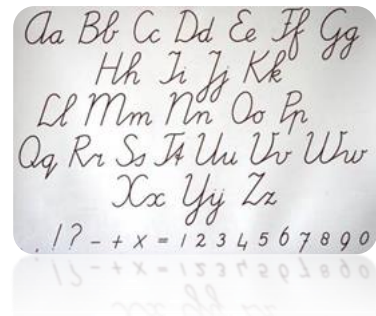 Aa Bb Cc Dd Ee Ff Gg
Hh Ii Jj Kk
Ll Mm Nn Oo Pp
Qq Rr Ss Tt Uu Vv Ww
Xx Yy Zz
. ! ? - + x = 1 2 3 4 5 6 7 8 9 0